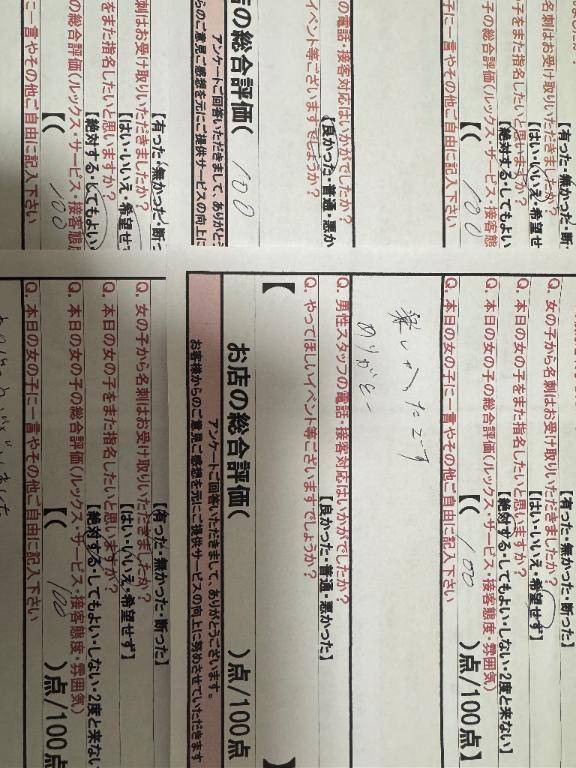 Q. 女の子から名刺はお受け取りいただきましたか?
【有った・無かった・断った】
【はい・いいえ・希望せず】
Q. 本日の女の子をまた指名したいと思いますか?
【絶対する・してもよい・しない・2度と来ない
Q. 本日の女の子の総合評価(ルックス・サービス・接客態度・雰囲気)
【( 100 )点/100点】
Q. 本日の女の子に一言やその他ご自由に記入下さい
楽しかったでーす
ありがとー
Q. 男性スタッフの電話・接客対応はいかがでしたか?
【良かった・普通・悪かった】
Q. やってほしいイベント等ございますでしょうか?
【 】
お店の総合評価( )点/100点
アンケートご回答いただきまして、ありがとうございます。
お客様からのご意見ご感想を元にご提供サービスの向上に努めさせていただきます
【有った・無かった・断った】
Q. 女の子から名刺はお受け取りいただきましたか?
【はい・いいえ・希望せず】
Q. 本日の女の子をまた指名したいと思いますか?
【絶対する・してもよい・しない・2度と来ない
Q. 本日の女の子の総合評価(ルックス・サービス・接客態度・雰囲気)
【( 100 )点/100点
Q. 本日の女の子に一言やその他ご自由に記入下さい
【有った・無かった・断っ
名刺はお受け取りいただきましたか?
【はい・いいえ・希望せ
子をまた指名したいと思いますか?
【絶対する・してもよい
子の総合評価(ルックス・サービス・接客態
【( 100
子に一言やその他ご自由に記入下さい
の電話・接客対応はいかがでしたか?
【良かった・普通・悪か
イベント等ございますでしょうか?
店の総合評価( 100
アンケートご回答いただきまして、ありがと
らのご意見ご感想を元にご提供サービスの向上に
【有った・無かった・断っ
刺はお受け取りいただきましたか?
【はい・いいえ・希望せ
をまた指名したいと思いますか?
【絶対する・してもよい
の総合評価(ルックス・サービス・接客態
【( 100
に一言やその他ご自由に記入下さい